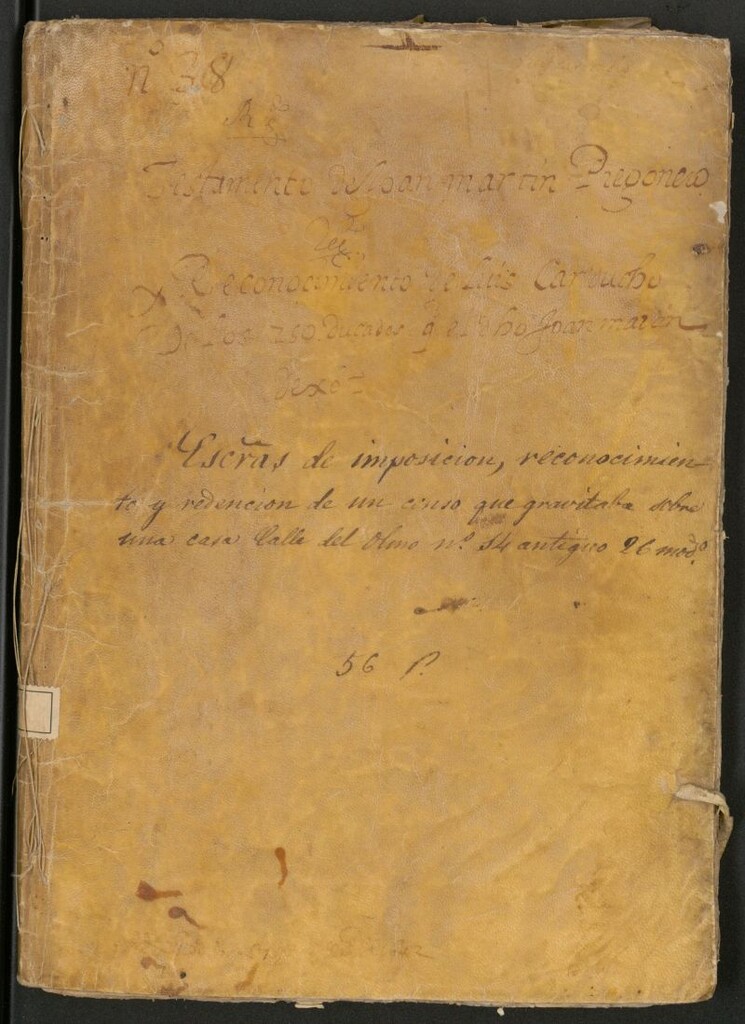 nº 38
Testamento de Joan martin Pregonero
y Reconocimiento de luis Cartucho
De los 750 Ducados q el dho Joan martin
dexó =
Escrãs de imposicion, reconocimien-
to y redencion de un censo que gravitaba sobre
una casa Calle del Olmo nº. 14 antiguo 26 modº.
56 P.